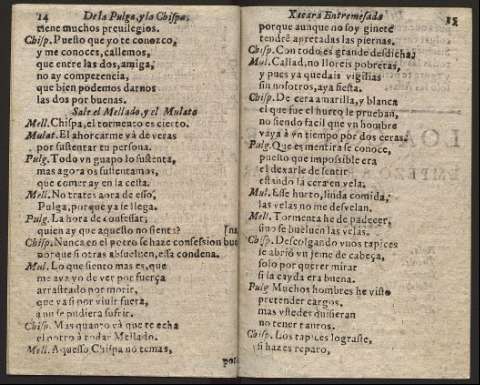 14 De la Pulga, y la Chispa.
tiene muchos preuilegios.
Chisp. Puesto que yo te conozco,
y me conoces, callemos,
que entre las dos, amiga,
no ay competencia,
que bien podemos darnos
las dos por buenas.
Sale el Mellado, y el Mulato
Mell. Chispa, el tormento es cierto.
Mulat. El ahorcarme và de veras
por sustentar tu persona.
Pulg. Todo vn guapo lo sustenta,
mas agora os sustentamos,
que comer ay en la cesta.
Mell. No trates aora de esso,
Pulga, porque ya te llega.
Pulg. La hora de confessar;
quien ay que aquesto no siente?
Chisp. Nunca en el potro se haze confession bue [na
porque si otras absuelben, essa condena.
Mul. Lo que siento mas es, que
me aya yo de ver por fuerça
arrastrado por morir,
que va si por viuir fuera,
aun se pudiera sufrir.
Chisp. Mas quanto và que te echa
el potro à rodar Mellado.
Mell. Aquesso Chispa no temas,
por-
Xacara Entremesada 15
porque aunque no soy ginete
tendrè apretadas las piernas.
Chisp. Con todo es grande desdicha;
Mul. Callad, no lloreis pobretas,
y pues ya quedais vigilias
sin nosotros, aya fiesta.
Chisp. De cera amarilla, y blanca
el que fue el hurto le prueban,
no siendo facil que vn hombre
vaya à vn tiempo por dos ceras.
Pulg. Que es mentira se conoce,
puesto que impossible era
el dexarle de sentir
estando la cera en vela.
Mul. Esse hurto, linda comida,
las velas no me desvelan.
Mell. Tormenta he de padecer,
sino se buelven las velas.
Chisp. Descolgando vnos tapices
se abriò vn jeme de cabeça,
solo por querer mirar
si la cayda era buena.
Pulg Muchos hombres he visto
pretender cargos,
mas vstedes quisieran
no tener tantos.
Chisp. Los tapices lograste,
si hazes reparo,